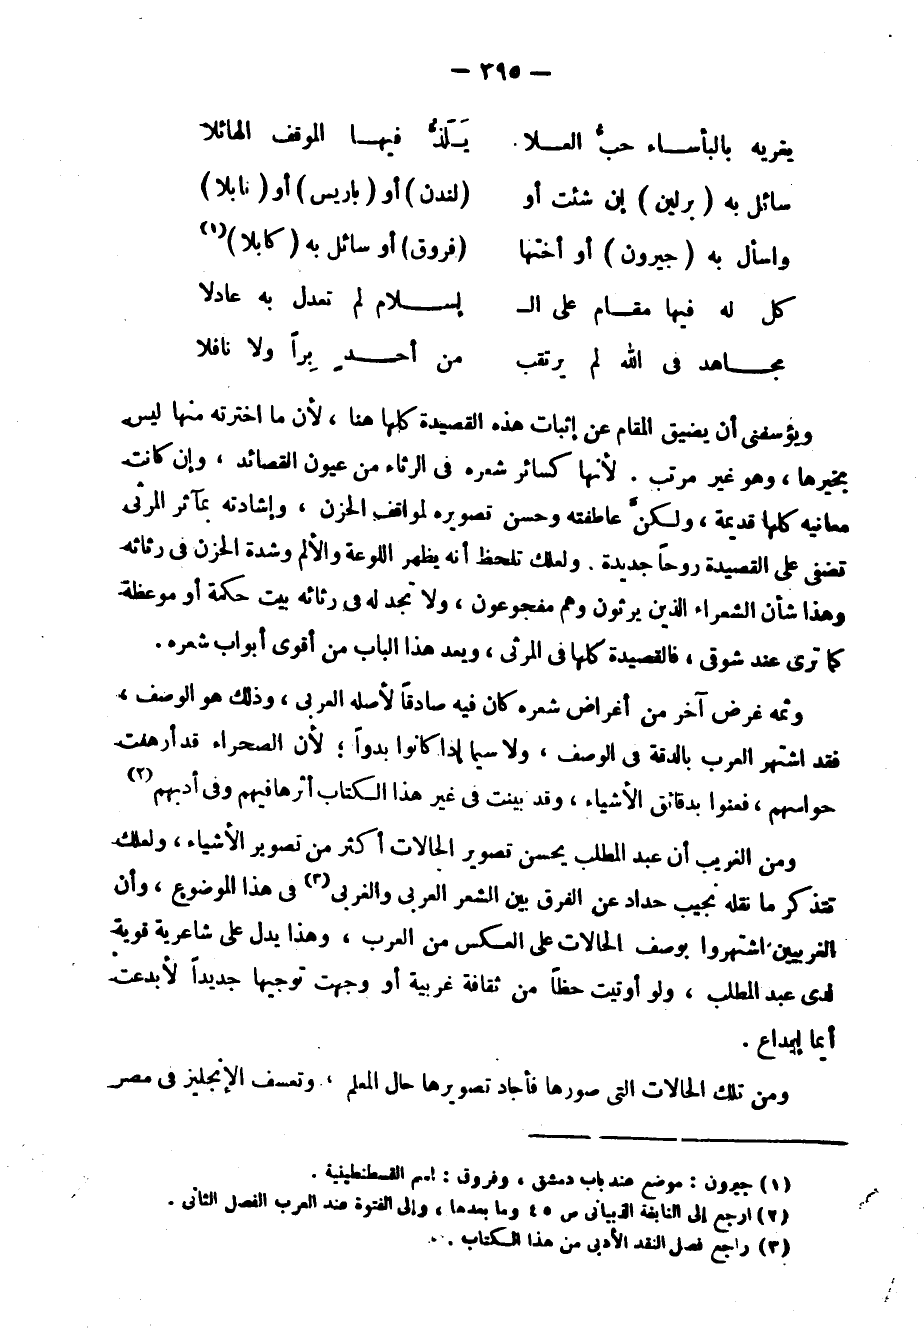 — ٣٩٥ —
يغريه بالبأساء حبُّ العلا يَلَذُّ فيها الموقف الهائلا
سائل به (برلين) إن شئت أو (لندن) أو (باريس) أو (نابلا)
واسأل به (جيرون) أو أختها (فروق) أو سائل به (كابلا)(١)
كل له فيها مقام على الـ إسلام لم تعدل به عادلا
مجاهد فى الله لم يرتقب من أحدٍ بِراً ولا نافلا
ويؤسفنى أن يضيق المقام عن إثبات هذه القصيدة كلها هنا ، لأن ما اخترته منها ليس
بخيرها ، وهو غير مرتب . لأنها كسائر شعره فى الرثاء من عيون القصائد ، وإن كانت
معانيه كلها قديمة ، ولكنَّ عاطفته وحسن تصويره لمواقف الحزن ، وإشادته بمآثر المرثى
تضفى على القصيدة روحاً جديدة . ولعلك تلحظ أنه يظهر اللوعة والألم وشدة الحزن فى رثائه
وهذا شأن الشعراء الذين يرثون وهم مفجوعون ، ولا تجد له فى رثائه بيت حكمة أو موعظة
كما ترى عند شوقى ، فالقصيدة كلها فى المرثى ، ويعد هذا الباب من أقوى أبواب شعره .
وثمه غرض آخر من أغراض شعره كان فيه صادقاً لأصله العربى ، وذلك هو الوصف ،
فقد اشتهر العرب بالدقة فى الوصف ، ولا سيما إذا كانوا بدواً ؛ لأن الصحراء قد أرهفت
حواسهم ، فعنوا بدقائق الأشياء ، وقد بينت فى غير هذا الكتاب أثرها فيهم وفى أدبهم(٢)
ومن الغريب أن عبد المطلب يحسن تصوير الحالات أكثر من تصوير الأشياء ، ولعلك
تتذكر ما نقله نجيب حداد عن الفرق بين الشعر العربى والغربى(٣) فى هذا الموضوع ، وأن
الغربيين اشتهروا بوصف الحالات على العكس من العرب ، وهذا يدل على شاعرية قوية
لدى عبد المطلب ، ولو أوتيت حظاً من ثقافة غربية أو وجهت توجيها جديداً لأبدعت
أيما إبداع .
ومن تلك الحالات التى صورها فأجاد تصويرها حال المعلم ، وتعسف الإنجليز فى مصر
(١) جيرون : موضع عند باب دمشق ، وفروق : اسم القسطنطينية .
(٢) ارجع إلى النابغة الذبيانى ص ٤٥ وما بعدها ، وإلى الفتوة عند العرب الفصل الثانى .
(٣) راجع فصل النقد الأدبى من هذا الكتاب .